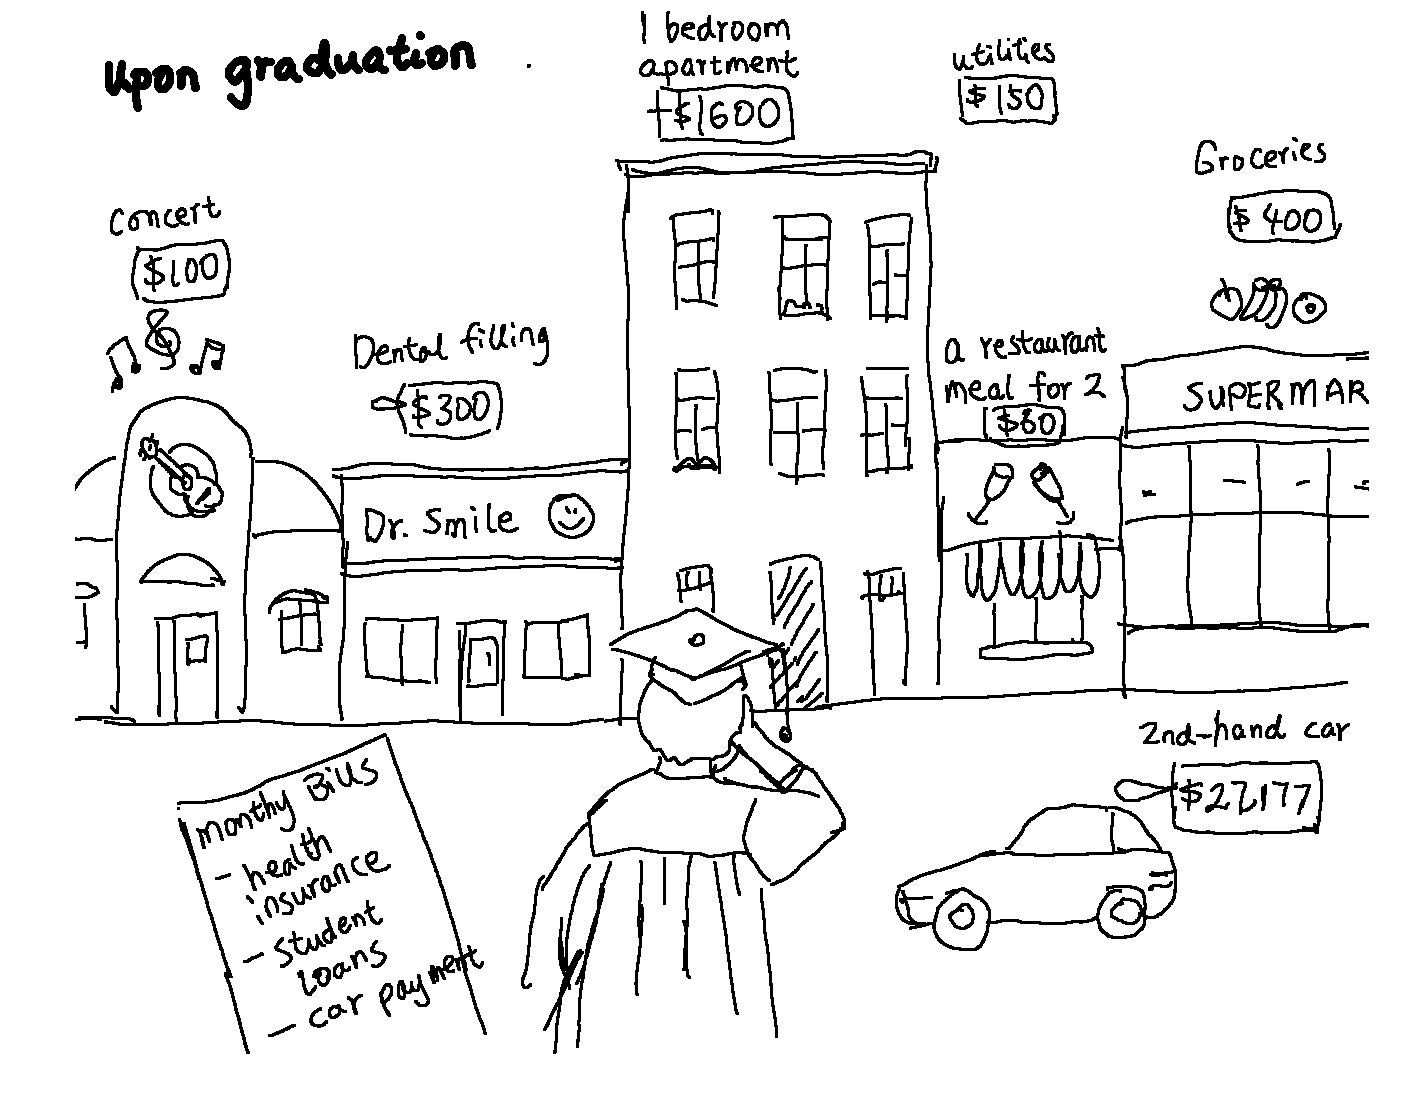 Upon graduation
1 bedroom
apartment
$1600
utilities
$150
Groceries
$400
concert
$100
Dental filling
$300
a restaurant
meal for 2
$80
SUPERMAR
Dr. Smile
2nd-hand car
$27,177
Monthy Bills
- health
insurance
- student
loans
- car payment